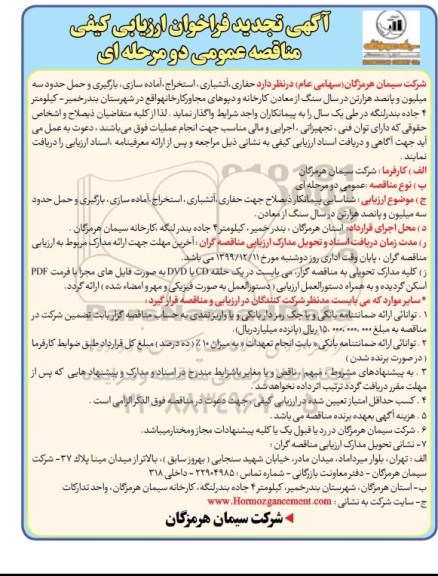 آگهی تجدید فراخوان ارزیابی کیفی
مناقصه عمومی دو مرحله ای
شرکت سیمان هرمزگان(سهامی عام) درنظر دارد حفاری،آتشباری، استخراج،آماده سازی، بارگیری و حمل حدود سه
میلیون و پانصد هزارتن در سال سنگ از معادن کارخانه و دپوهای مجاورکارخانهواقع در شهرستان بندرخمیر- کیلومتر
۴ جاده بندرلنگه در طی یک سال را به پیمانکاران واجد شرایط واگذار نماید . لذا از کلیه متقاضیان ذیصلاح و اشخاص
حقوقی که دارای توان فنی ، تجهیزاتی ، اجرایی و مالی مناسب جهت انجام عملیات فوق می باشند ، دعوت به عمل می
آید جهت آگاهی و دریافت اسناد ارزیابی کیفی به نشانی ذیل مراجعه و پس از ارائه معرفینامه ،اسناد ارزیابی را دریافت
نمایند .
الف ) کارفرما : شرکت سیمان هرمزگان
ب ) نوع مناقصه :عمومی دو مرحله ای
ج ) موضوع ارزیابی : شناسایی پیمانکار ذیصلاح جهت حفاری ،آتشباری ، استخراج،آماده سازی ، بارگیری و حمل حدود
سه میلیون و پانصد هزارتن در سال سنگ از معادن.
د ) محل اجرای قرارداد: استان هرمزگان ، بندر خمیر ، کیلومتر۴ جاده بندرلنگه ،کارخانه سیمان هرمزگان .
ر ) مدت زمان دریافت اسناد و تحویل مدارک ارزیابی مناقصه گران : آخرین مهلت جهت ارائه مدارک مربوط به ارزیابی
مناقصه گران ، پایان وقت اداری روز دوشنبه مورخ ۱۳۹۹/۱۲/۱۱ می باشد.
ز ) کلیه مدارک تحویلی به مناقصه گزار، می بایست در یک حلقه CD یا DVD به صورت فایل های مجزا با فرمت PDF
اسکن گردیده و به همراه دستورالعمل ارزیابی ( دستورالعمل به صورت فیزیکی و مهر و امضاء شده ) ارائه گردد.
*سایر موارد که می بایست مدنظر شرکت کنندگان در ارزیابی و مناقصه قرار گیرد :
۱ . توانائی ارائه ضمانتنامه بانکی و یا چک رمز دار بانکی و یا واریز نقدی به حساب مناقصه گزار بابت تضمین شرکت در
مناقصه به مبلغ ۱۵،۰۰۰،۰۰۰،۰۰۰ ریال (پانزده میلیارد ریال).
۲ . توانائی ارائه ضمانتنامه بانکی« بابت انجام تعهدات » به میزان ۱۰ ٪ ( ده درصد ) مبلغ کل قرارداد طبق ضوابط کارفرما
( در صورت برنده شدن )
۳ . به پیشنهادهای مشروط ، مبهم ، ناقص و یا مغایر باشرایط مندرج در اسناد و مدارک و پیشنهاد هایی که پس از
مهلت مقرر دریافت گردد ترتیب اثر داده نخواهد شد.
۴ . کسب حداقل امتیاز تعیین شده در ارزیابی کیفی ، جهت دعوت در مناقصه فوق الذکر الزامی است .
۵ . هزینه آگهی بعهده برنده مناقصه می باشد .
۶ . شرکت سیمان هرمزگان در رد یا قبول یک یا کلیه پیشنهادات مجاز ومختارمیباشد.
۷- نشانی تحویل مدارک ارزیابی مناقصه گران :
الف : تهران، بلوار میرداماد، میدان مادر، خیابان شهید سنجابی ( بهروز سابق )، بالاتر از میدان مینا پلاک ۳۷- شرکت
سیمان هرمزگان - دفتر معاونت بازرگانی - شماره تماس : ۲۲۹۰۴۹۸۵ - داخلی ۳۱۸
ب- استان هرمزگان، شهرستان بندرخمیر، کیلومتر ۴ جاده بندرلنگه، کارخانه سیمان هرمزگان، واحد تدارکات
ج- سایت شرکت به نشانی : www.Hormozgancement.com
شرکت سیمان هرمزگان